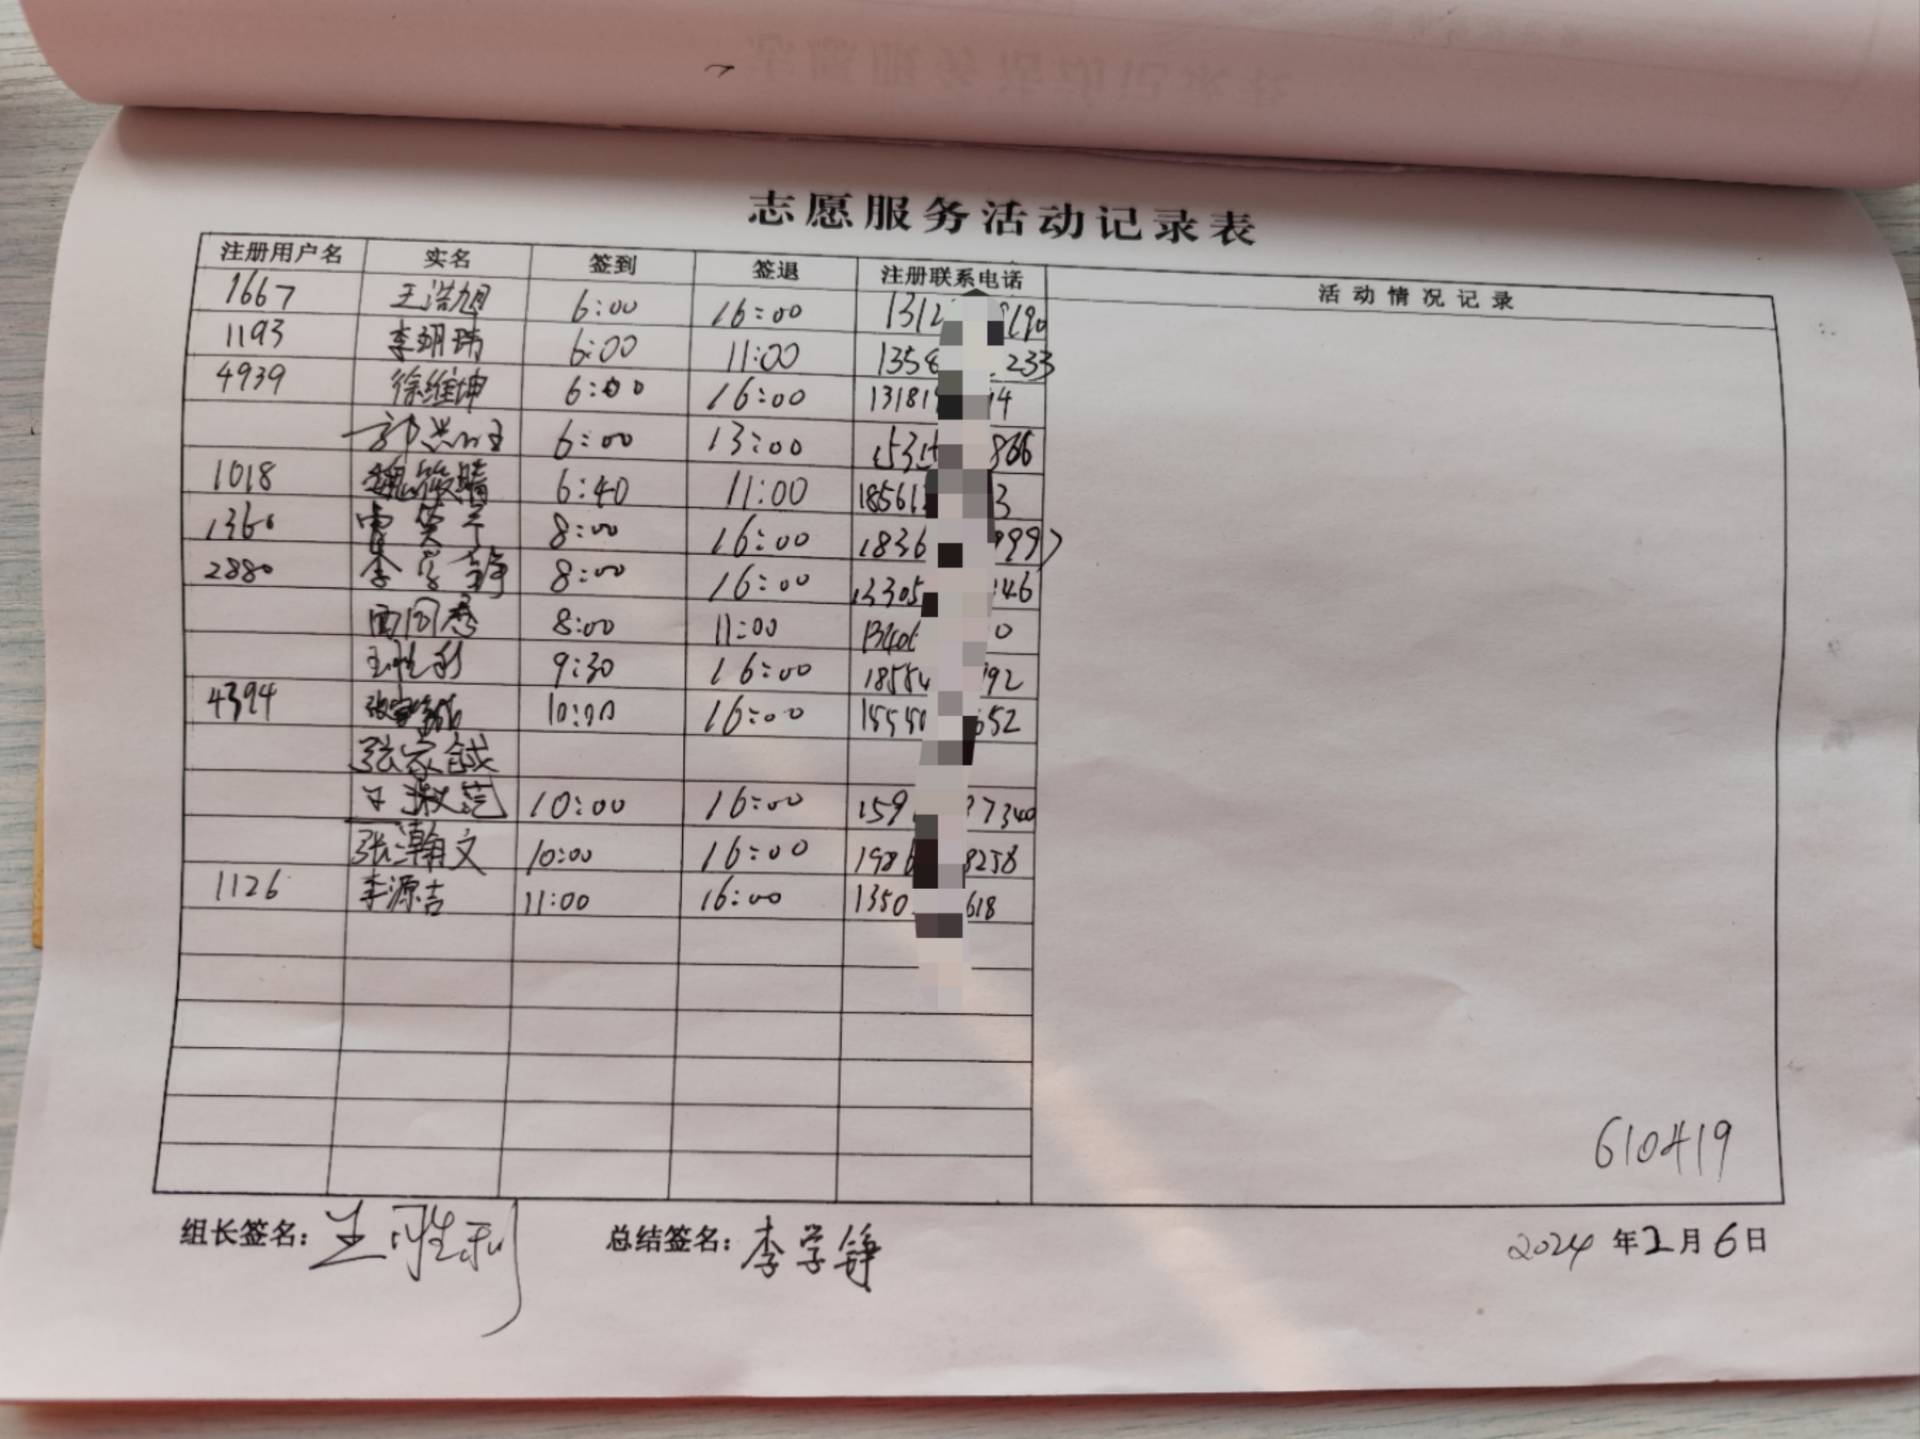 志愿服务活动记录表
注册用户名 实名 签到 签退 注册联系电话 活动情况记录
1667 王浩旭 6:00 16:00 1312 8190
1193 李翊玮 6:00 11:00 1358 233
4939 徐维坤 6:00 16:00 13181 14
6:00 13:00 1531 866
1018 魏筱晴 6:40 11:00 18561 3
1360 8:00 16:00 1836 999
2880 李学铮 8:00 16:00 13305 146
8:00 11:00 13406 0
王胜利 9:30 16:00 18554 92
4394 10:00 16:00 15550 652
张家铖
10:00 16:00 159 37340
张瀚文 10:00 16:00 1986 8258
1126 李源吉 11:00 16:00 1350 618
610419
组长签名: 王胜利 总结签名: 李学铮 2024年2月6日